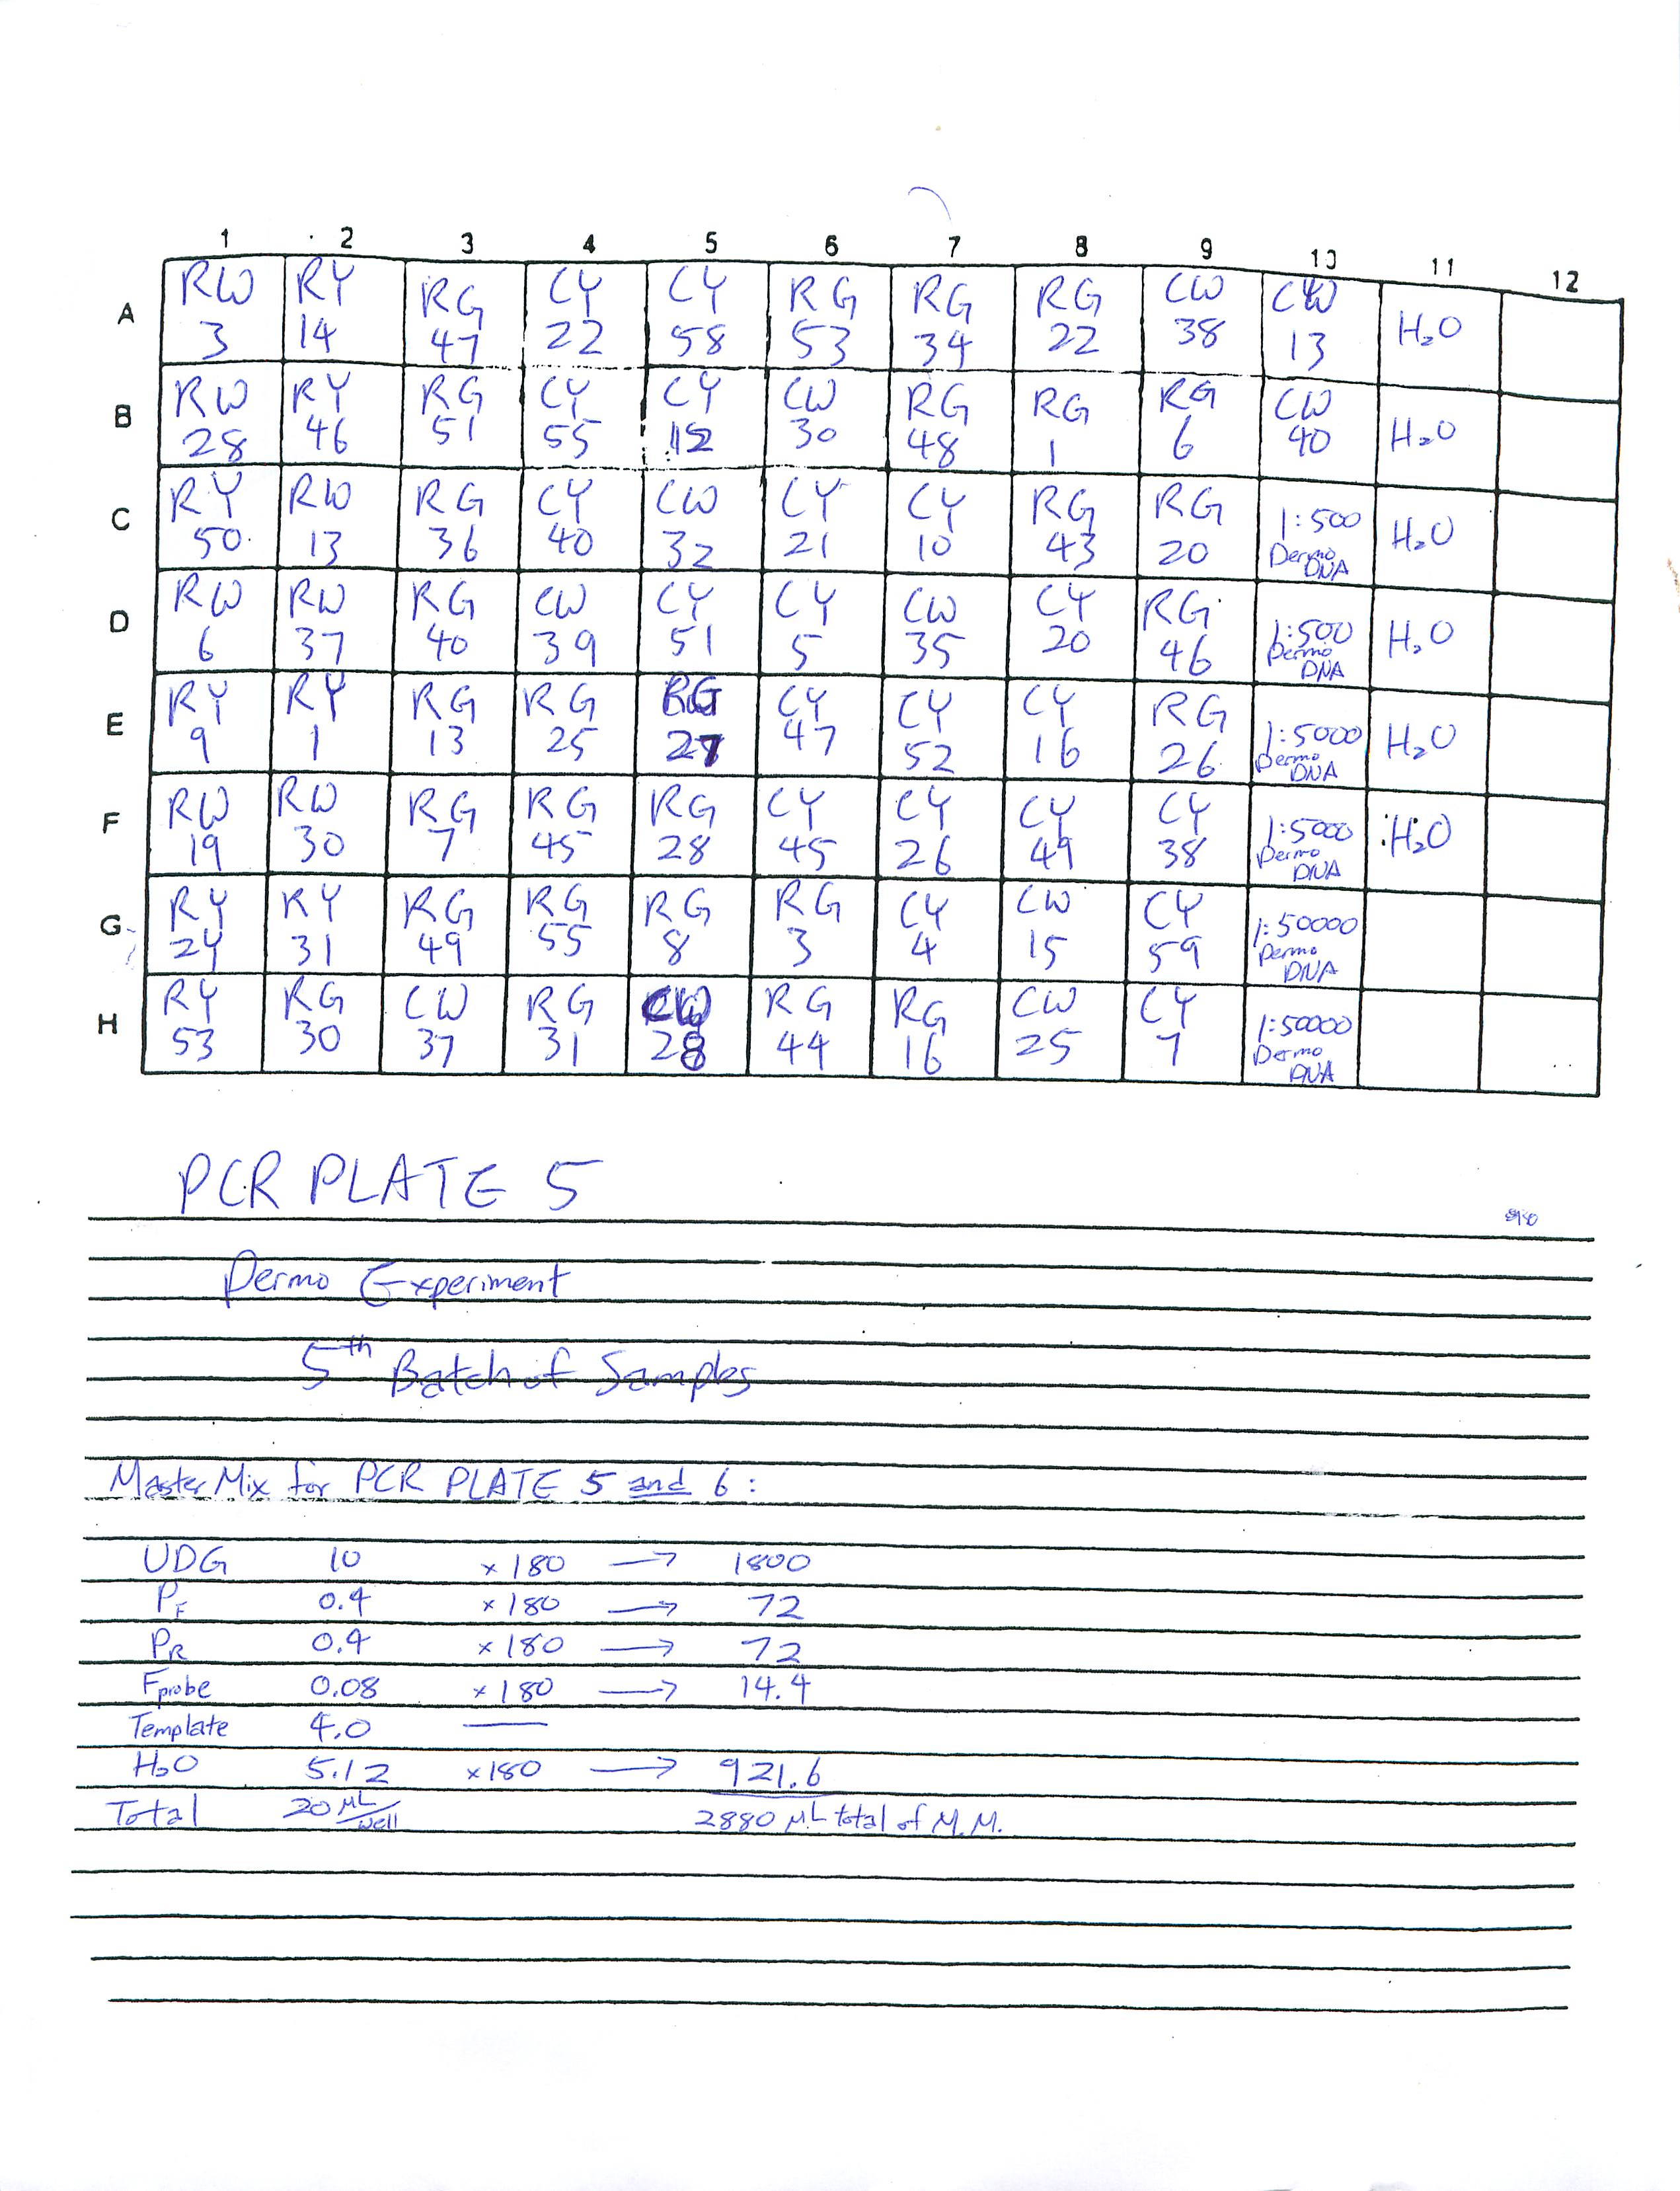 1 2 3 4 5 6 7 8 9 10 11 12
A RW 3 RY 14 RG 47 CY 22 CY 58 RG 53 RG 34 RG 22 CW 38 CW 13 H₂O
B RW 28 RY 46 RG 51 CY 55 CY 12 CW 30 RG 48 RG 1 RG 6 CW 40 H₂O
C RY 50 RW 13 RG 36 CY 40 CW 32 CY 21 CY 10 RG 43 RG 20 1:500 Dermo DNA H₂O
D RW 6 RW 37 RG 40 CW 39 CY 51 CY 5 CW 35 CY 20 RG 46 1:500 Dermo DNA H₂O
E RY 9 RY 1 RG 13 RG 25 RG 27 CY 47 CY 52 CY 16 RG 26 1:5000 Dermo DNA H₂O
F RW 19 RW 30 RG 7 RG 45 RG 28 CY 45 CY 26 CY 49 CY 38 1:5000 Dermo DNA H₂O
G RY 24 RY 31 RG 49 RG 55 RG 8 RG 3 CY 4 CW 15 CY 59 1:50000 Dermo DNA
H RY 53 RG 30 CW 37 RG 31 CW 28 RG 44 RG 16 CW 25 CY 7 1:50000 Dermo DNA
PCR PLATE 5
Dermo Experiment
5th Batch of Samples
Master Mix for PCR PLATE 5 and 6:
UDG 10 ×180 → 1800
PF 0.4 ×180 → 72
PR 0.4 ×180 → 72
Fprobe 0.08 ×180 → 14.4
Template 4.0 —
H₂O 5.12 ×180 → 921.6
Total 20 µL/well 2880 µL total of M.M.